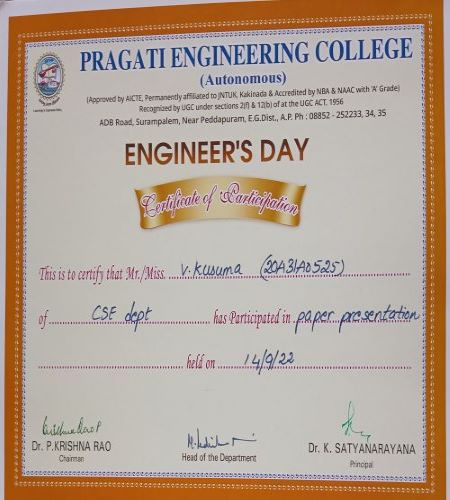 PRAGATI ENGINEERING COLLEGE
(Autonomous)
(Approved by AICTE, Permanently affiliated to JNTUK, Kakinada & Accredited by NBA & NAAC with 'A' Grade)
Recognized by UGC under sections 2(f) & 12(b) of at the UGC ACT, 1956
ADB Road, Surampalem, Near Peddapuram, E.G.Dist., A.P. Ph : 08852 - 252233, 34, 35
ENGINEER'S DAY
Certificate of Participation
This is to certify that Mr./Miss. V. Kusuma (20A31A0525)
of CSE dept has Participated in paper presentation
held on 14/9/22
Dr. P.KRISHNA RAO
Chairman
Head of the Department
Dr. K. SATYANARAYANA
Principal